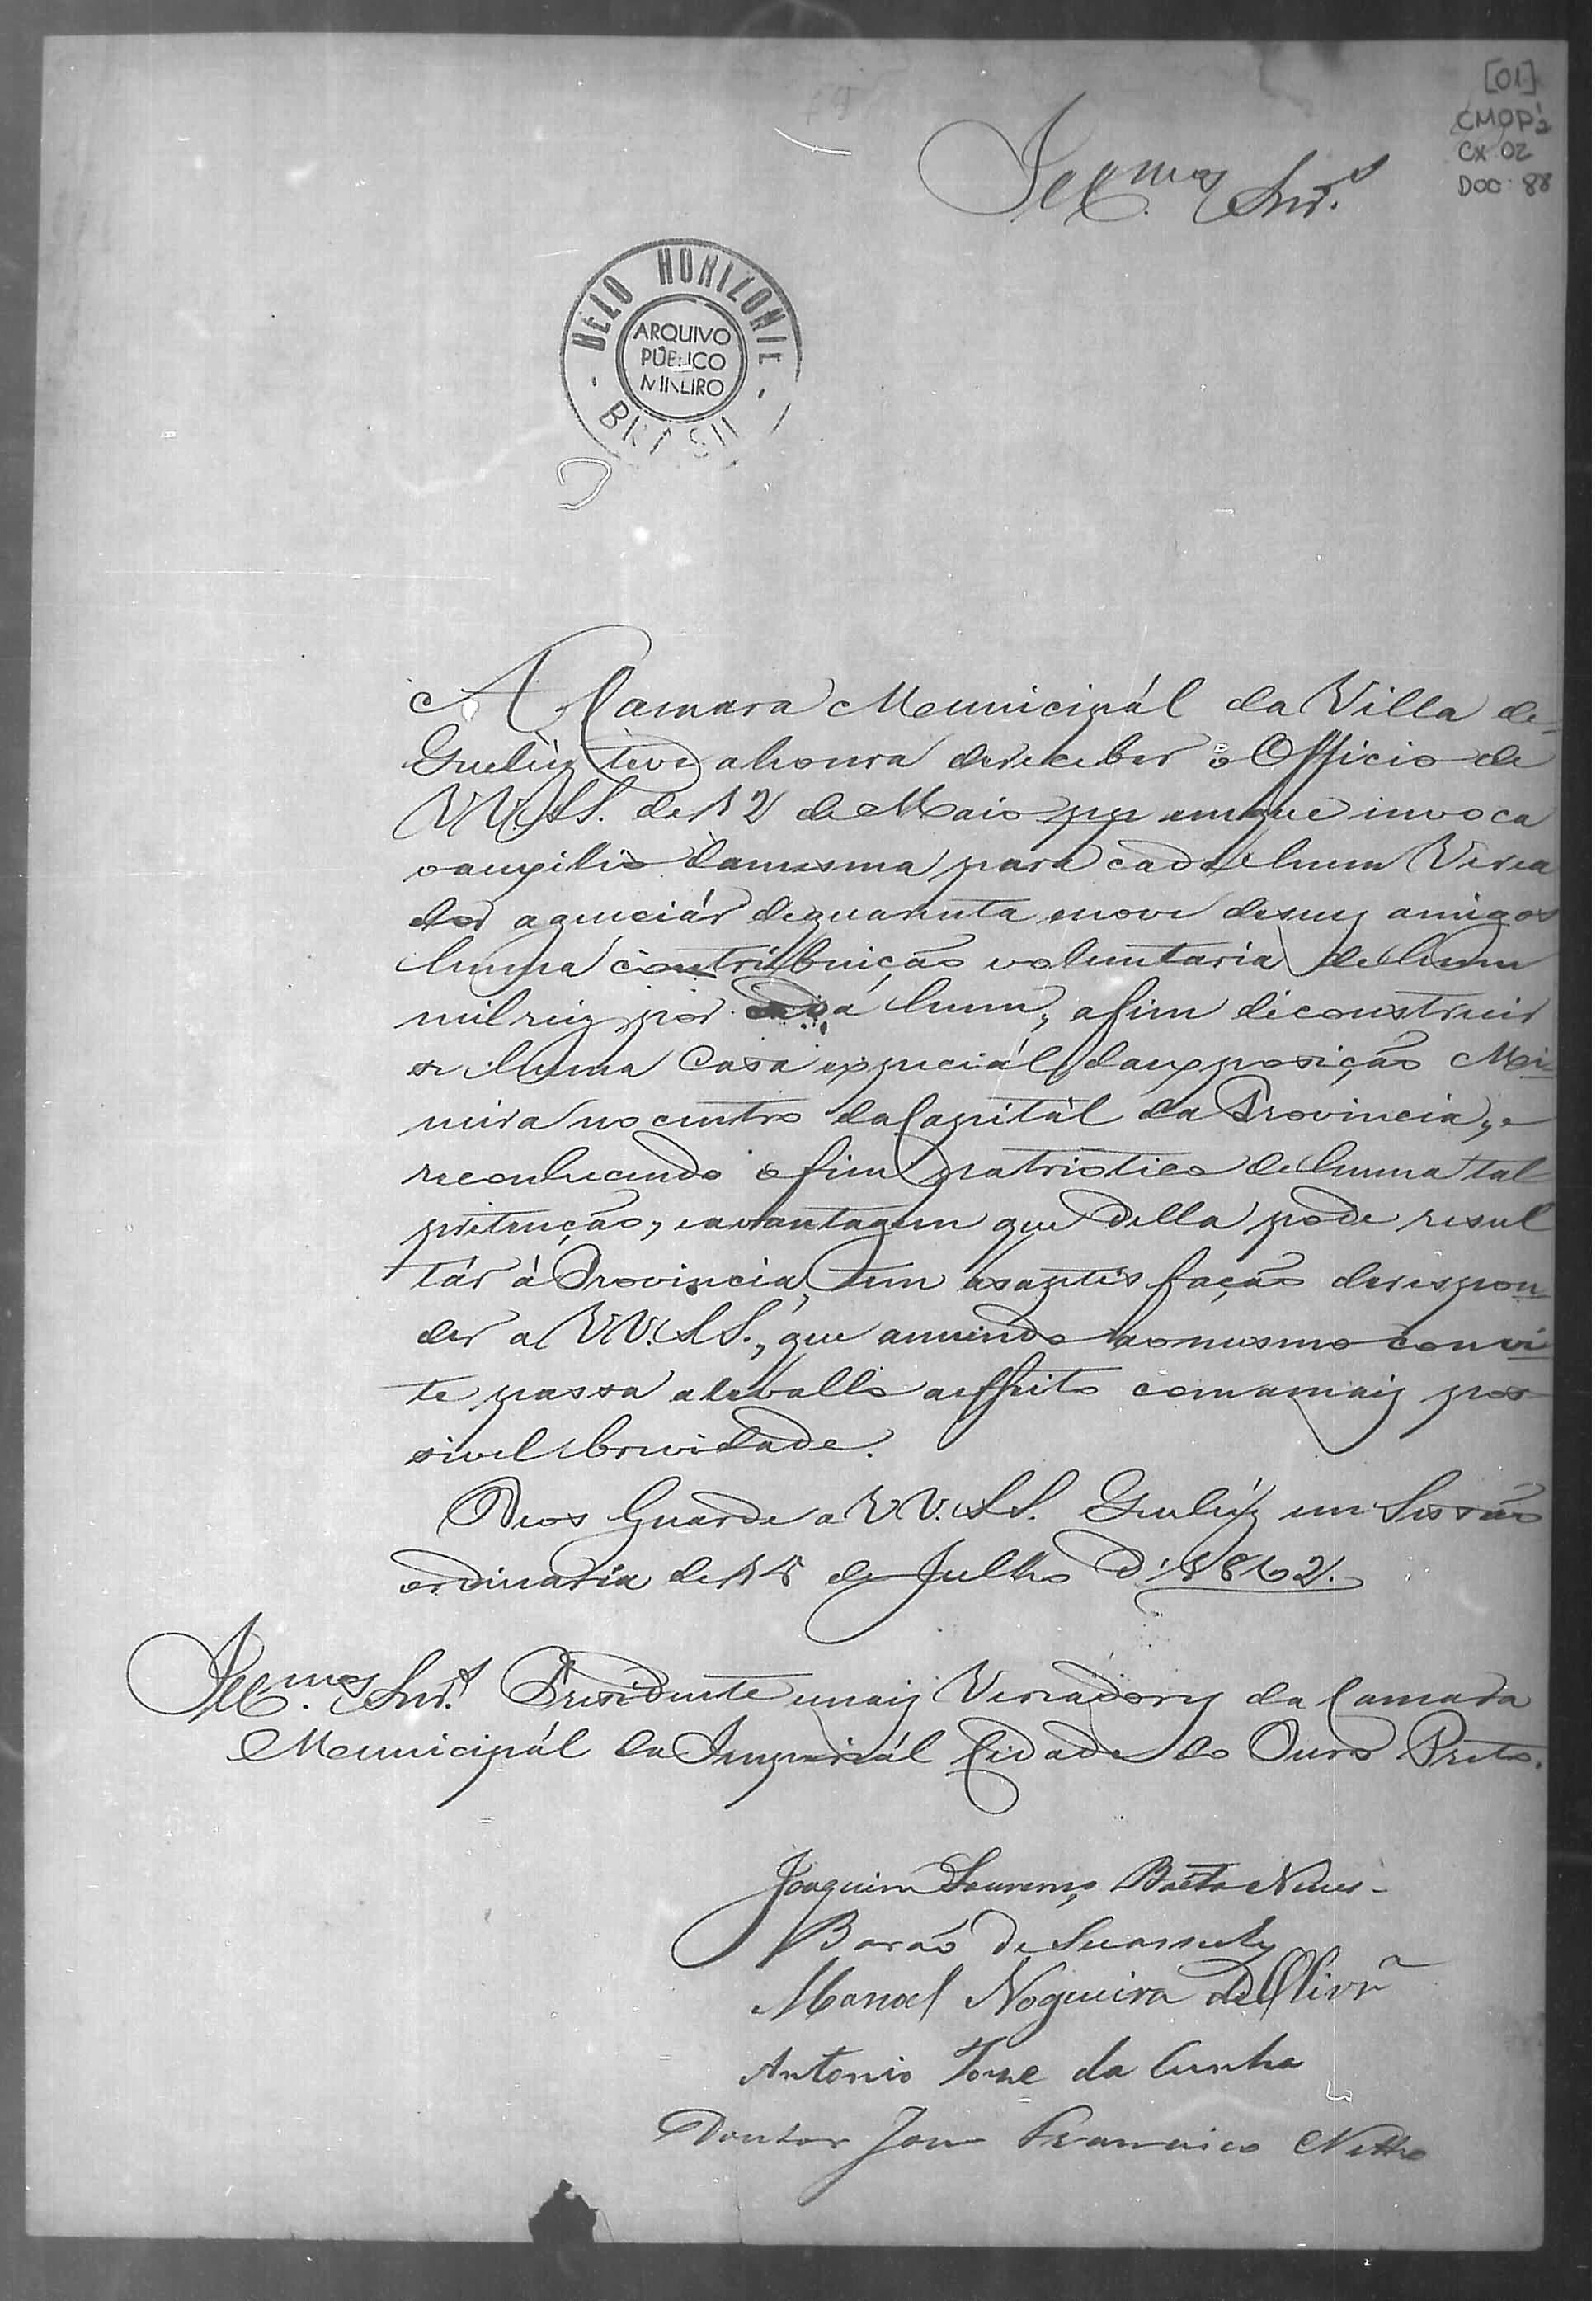 [01]
CMOP 1/2
CX 02
DOC: 88
Ill.mos Snr.s
BELO HORIZONTE
ARQUIVO
PÚBLICO
MINEIRO
BRASIL
A Camara Municipál da Villa de
Quelúz teve ahonra dereceber o Officio de
VV. SS. de 12 de Maio pp emque invoca
oauxilio damesma para cada hum Verea
dor agenciár dequarenta enove deseus amigos
huma contribuição voluntaria de hum
milreis por cada hum, afim deconstruir
se huma Casa especiál daexposição Mi
neira no centro daCapitál da Provincia, e
reconhecendo o fim patriotico de huma tal
pretenção, eavantagem que della pode resul
tár á Provincia, tem asaptisfação derespon
der a VV. SS., que annuindo aomesmo convi
te passa alevallo aeffeito comamais pos
sivel brevidade.
Deos Guarde a VV. SS. Quelúz em Sessão
ordinaria de 15 de Julho d'1862.
Ill.mos Snr.s Presidente emais Vereadores da Camara
Municipál da Imperiál Cidade do Ouro Preto.
Joaquim Lourenço Baêta Neves
Barão de Suassuhy
Manoel Nogueira de Olivr.a
Antonio Jose da Cunha
Doutor Jose Francisco Netto